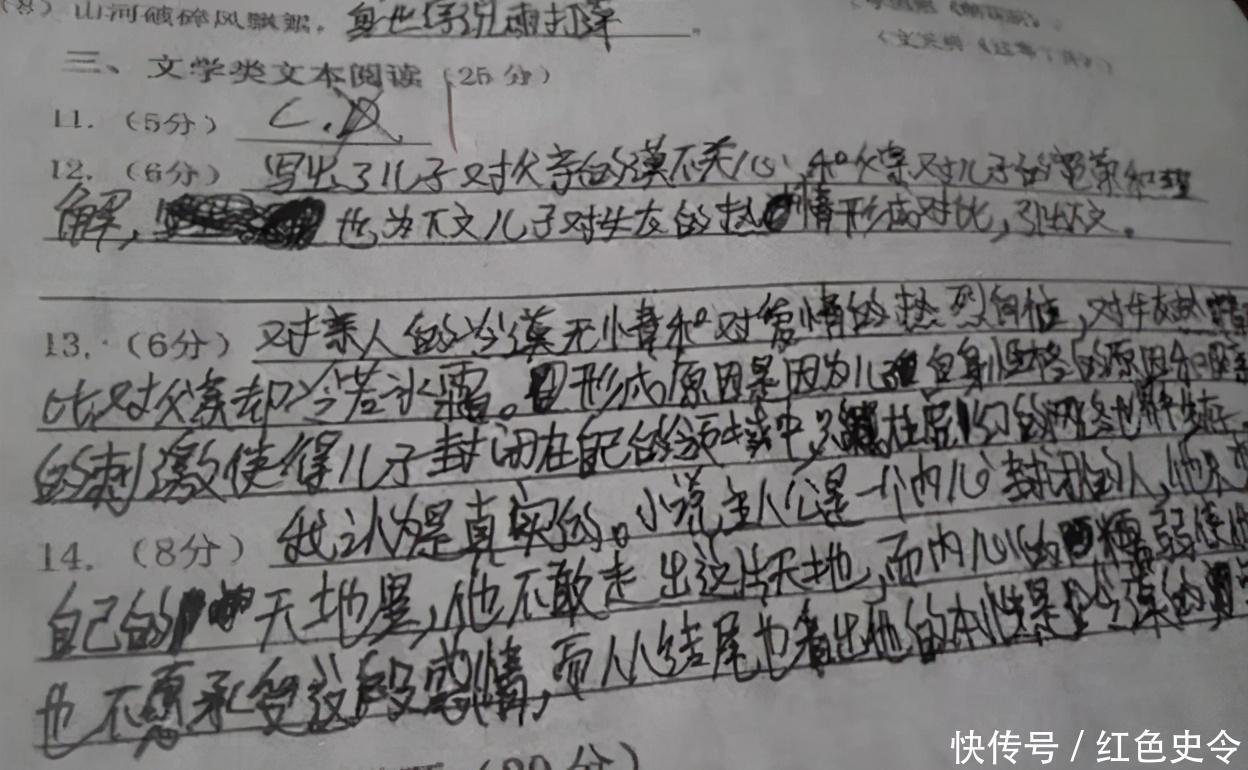 (8) 山河破碎风飘絮，身世浮沉雨打萍。
三、文学类文本阅读（25分）
11.（5分） C.D.
12.（6分） 写出了儿子对父亲的漠不关心，和父亲对儿子的 和理
解， 也为下文儿子对女友的热情形成对比，引出下文。
13.（6分） 对亲人的冷漠无情和对爱情的热烈 ，对女友
比对父亲却冷若冰霜。形成原因是因为儿 自身性格的原因和
的刺激使得儿子封闭在自己的领域中，只 在 的网络世界
14.（8分） 我认为是真实的。小说主人公是一个内心封闭的人，他
自己的 天地里，他不敢走出这片天地，而内心的 弱使他
也不愿承受这段感情，而从结尾也看出他的本性是 冷漠的
分）
快传号 / 红色史令